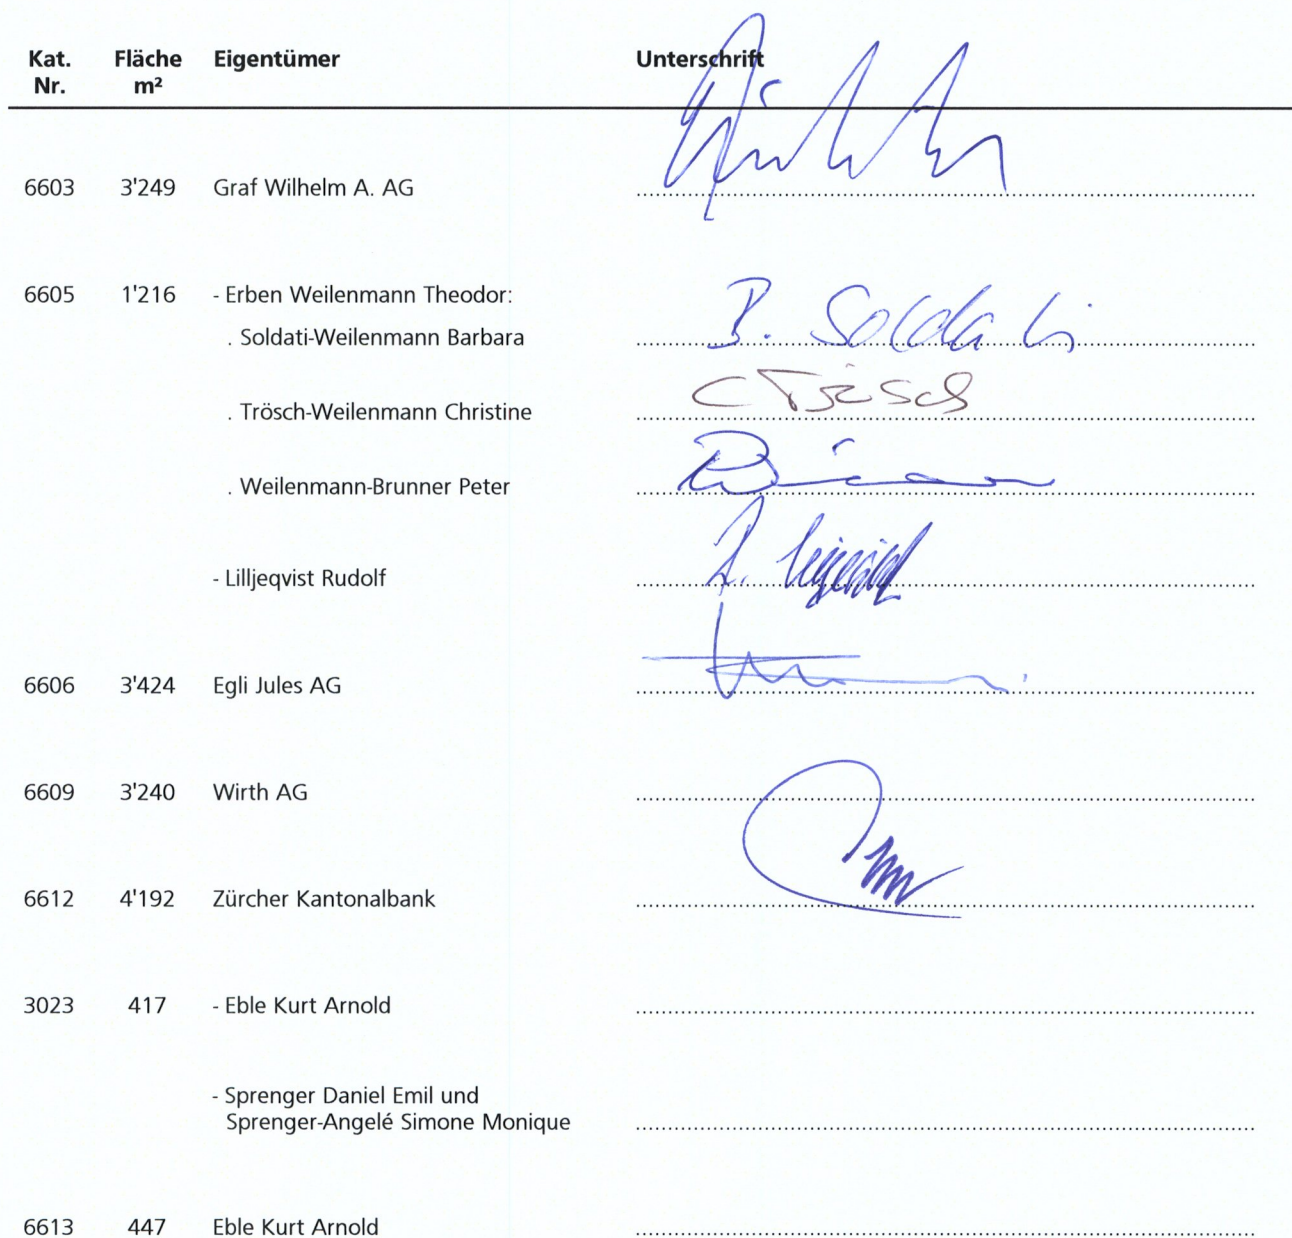 Kat. Fläche Eigentümer Unterschrift
Nr. m²
6603 3'249 Graf Wilhelm A. AG
6605 1'216 - Erben Weilenmann Theodor:
. Soldati-Weilenmann Barbara B. Soldati
. Trösch-Weilenmann Christine C Trösch
. Weilenmann-Brunner Peter
- Lilljeqvist Rudolf
6606 3'424 Egli Jules AG
6609 3'240 Wirth AG
6612 4'192 Zürcher Kantonalbank
3023 417 - Eble Kurt Arnold
- Sprenger Daniel Emil und
Sprenger-Angelé Simone Monique
6613 447 Eble Kurt Arnold